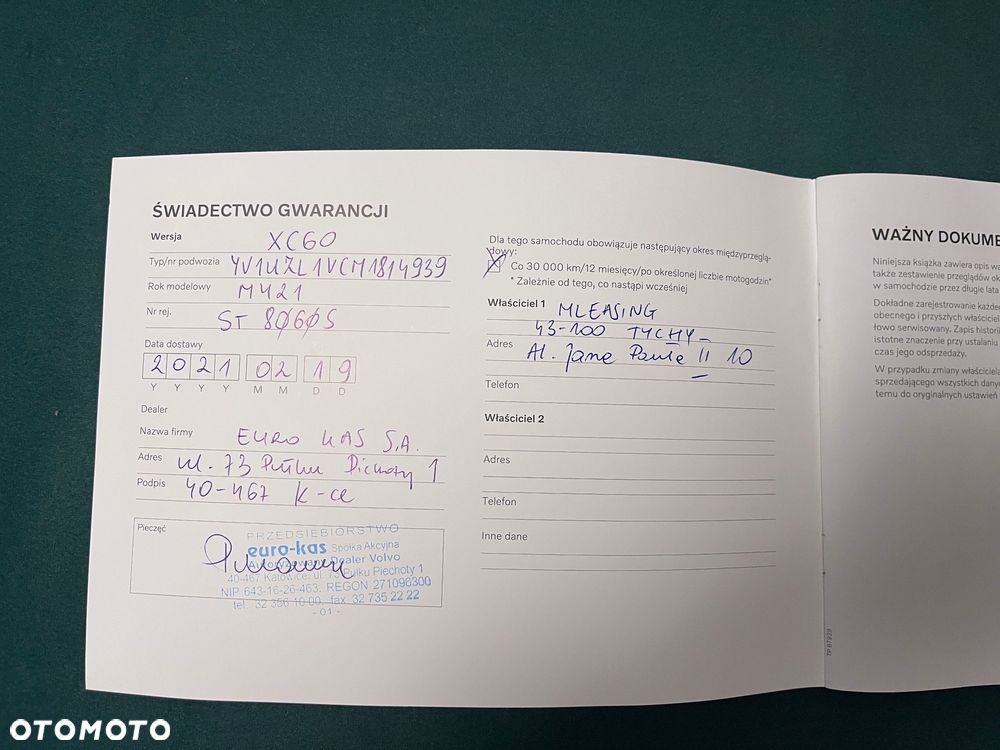 ŚWIADECTWO GWARANCJI
Wersja XC60
Typ/nr podwozia YV1UZL1VCM1814939
Rok modelowy MY21
Nr rej. ST 8060S
Data dostawy
2021 02 19
Y Y Y Y M M D D
Dealer
Nazwa firmy EURO KAS S.A.
Adres ul. 73 Pułku Piechoty 1
Podpis 40-467 K-ce
Pieczęć
PRZEDSIEBIORSTWO
euro-kas Spółka Akcyjna
Autoryzowany Dealer Volvo
40-467 Katowice, ul. 73 Pułku Piechoty 1
NIP 643-16-26-463, REGON 271096300
tel. 32 356 10 00, fax 32 735 22 22
- 01 -
Dla tego samochodu obowiązuje następujący okres międzyprzeglą-
dowy:
Co 30 000 km/12 miesięcy/po określonej liczbie motogodzin*
* Zależnie od tego, co nastąpi wcześniej
Właściciel 1 MLEASING
43-100 TYCHY
Adres Al. Jana Pawła II 10
Telefon
Właściciel 2
Adres
Telefon
Inne dane
WAŻNY DOKUME
Niniejsza książka zawiera opis wa
także zestawienie przeglądów ok
w samochodzie przez długie lata
Dokładne zarejestrowanie każde
obecnego i przyszłych właściciel
łowo serwisowany. Zapis histori
istotne znaczenie przy ustalaniu
czas jego odsprzedaży.
W przypadku zmiany właściciela
sprzedającego wszystkich dany
temu do oryginalnych ustawień
OTOMOTO